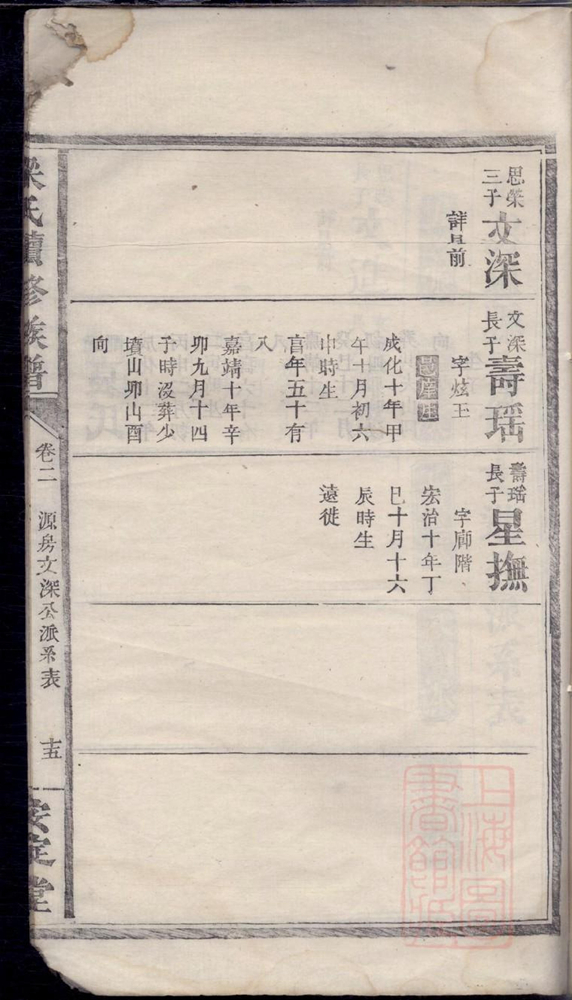 思榮
三子
文深
詳見前
文深
長子
壽瑶
字炫王
邑庠生
成化十年甲
午十月初六
申時生
享年五十有
八
嘉靖十年辛
卯九月十四
子時沒葬少
墳山卯山酉
向
壽瑶
長子
星撫
字廊階
宏治十年丁
巳十月十六
辰時生
遠徙
氏續修族譜
卷二
源房文深公派系表
十五
安定堂
上海圖
書館藏